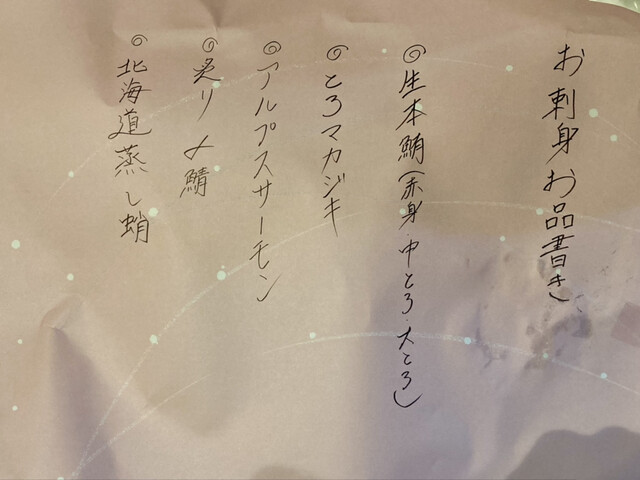 お刺身お品書き
◎生本鮪(赤身・中とろ・大とろ)
◎とろマカジキ
◎アルプスサーモン
◎炙り〆鯖
◎北海道蒸し蛸